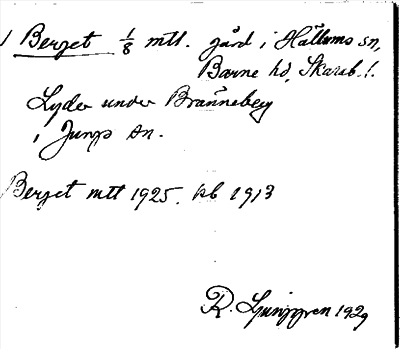 1 Berget 1/8 mtl. gård i Hällums sn,
Barne hd, Skarab. l.
Lyder under Bränneberg
i Jungs sn.
Berget mtl 1925. kb 1913
R. Ljunggren 1929